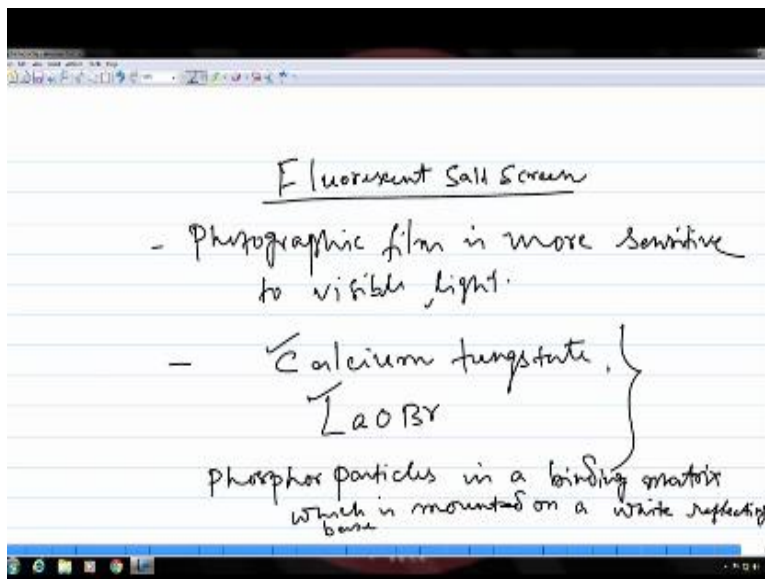 Fluorescent Salt Screen
- Photographic film is more sensitive
to visible light.
- Calcium tungstate,
LaOBr
Phosphor particles in a binding matrix
which is mounted on a white reflecting
base